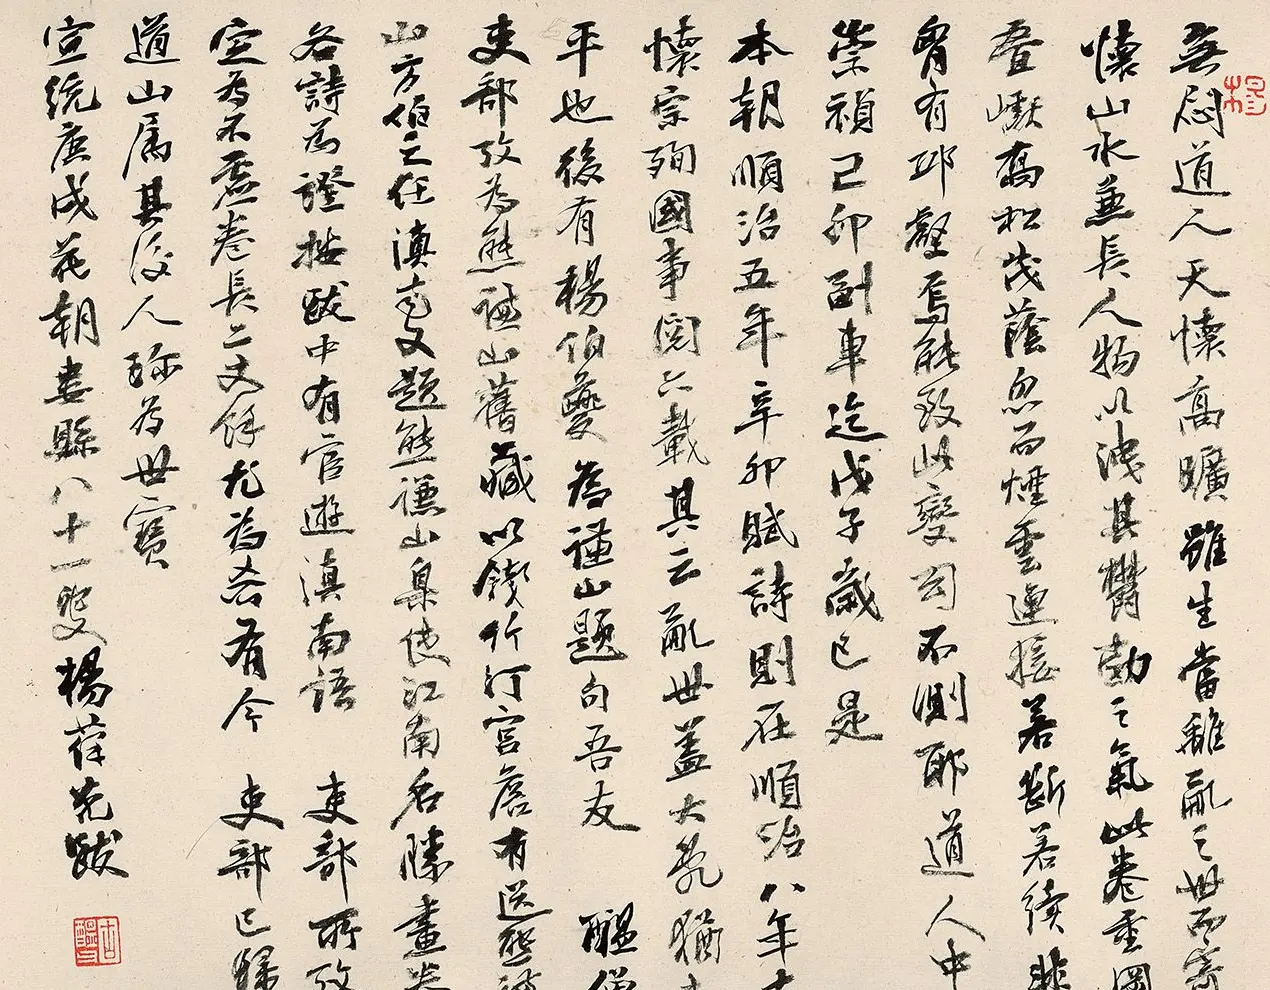 無悶道人天懷高曠雖生當離亂之世而寄
懷山水兼長人物以洩其鬱勃之氣此卷重岡
疊巘喬松茂蔭忽而煙雲連接若斷若續非
胷有邱壑焉能致此變幻不測耶道人中
崇禎己卯副車迄戊子歲已是
本朝順治五年辛卯賦詩則在順治八年
懷宗殉國事閱六載其云亂世蓋大亂猶
平也後有楊伯夔為謙山題句吾友 醖
吏部攷為熊謙山舊藏以錢竹汀宮詹有送熊
山方伯之任滇南又題熊謙山臬使江南名勝畫卷
各詩為證按跋中有官遊滇南語 吏部所攷
定為不虛卷長二丈餘尤為希有今 吏部已歸
道山屬其後人珍為世寶
宣統庚戌花朝婁縣八十一叟楊葆光跋